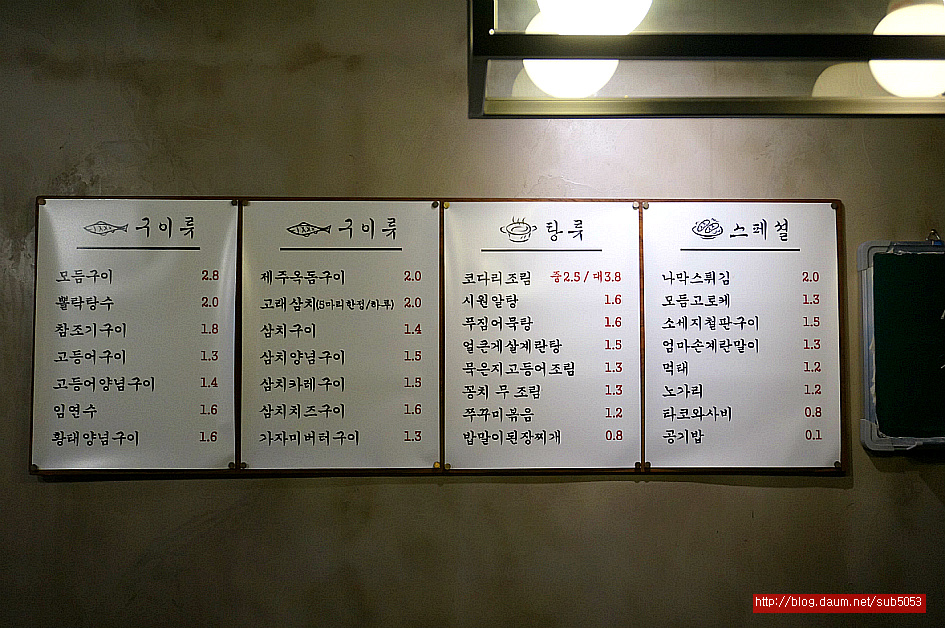 구이류
모듬구이 2.8
뽈탁탕수 2.0
참조기구이 1.8
고등어구이 1.3
고등어양념구이 1.4
임연수 1.6
황태양념구이 1.6
구이류
제주옥돔구이 2.0
고래삼치(5마리한정/하루) 2.0
삼치구이 1.4
삼치양념구이 1.5
삼치카레구이 1.5
삼치치즈구이 1.6
가자미버터구이 1.3
탕류
코다리조림 중2.5 / 대3.8
시원알탕 1.6
푸짐어묵탕 1.6
얼큰게살계란탕 1.5
묵은지고등어조림 1.3
꽁치 무 조림 1.3
쭈꾸미볶음 1.2
밥말이된장찌개 0.8
스페셜
나막스튀김 2.0
모듬고로케 1.3
소세지철판구이 1.5
엄마손계란말이 1.3
먹태 1.2
노가리 1.2
타코와사비 0.8
공기밥 0.1
http://blog.daum.net/sub5053